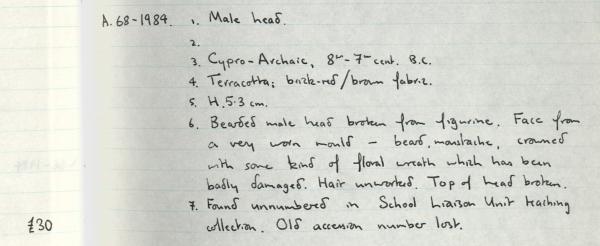 A.68-1984. 1. Male head.
2.
3. Cypro-Archaic, 8th-7th cent. B.C.
4. Terracotta; brick-red/brown fabric.
5. H. 5.3 cm.
6. Bearded male head broken from figurine. Face from
a very worn mould - beard, moustache, crowned
with some kind of floral wreath which has been
badly damaged. Hair unworked. Top of head broken.
7. Found unnumbered in School Liaison Unit teaching
collection. Old accession number lost.
£30